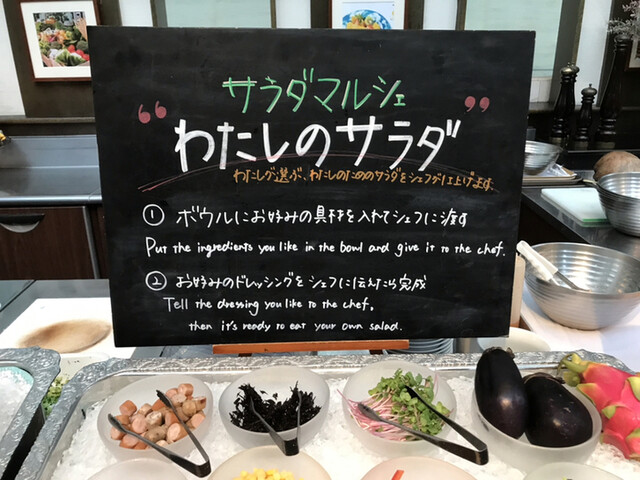 サラダマルシェ
“わたしのサラダ”
わたしが選ぶ、わたしのためのサラダをシェフが仕上げます。
① ボウルにお好みの具材を入れてシェフに渡す
Put the ingredients you like in the bowl and give it to the chef.
② お好みのドレッシングをシェフに伝えたら完成
Tell the dressing you like to the chef,
then it's ready to eat your own salad.